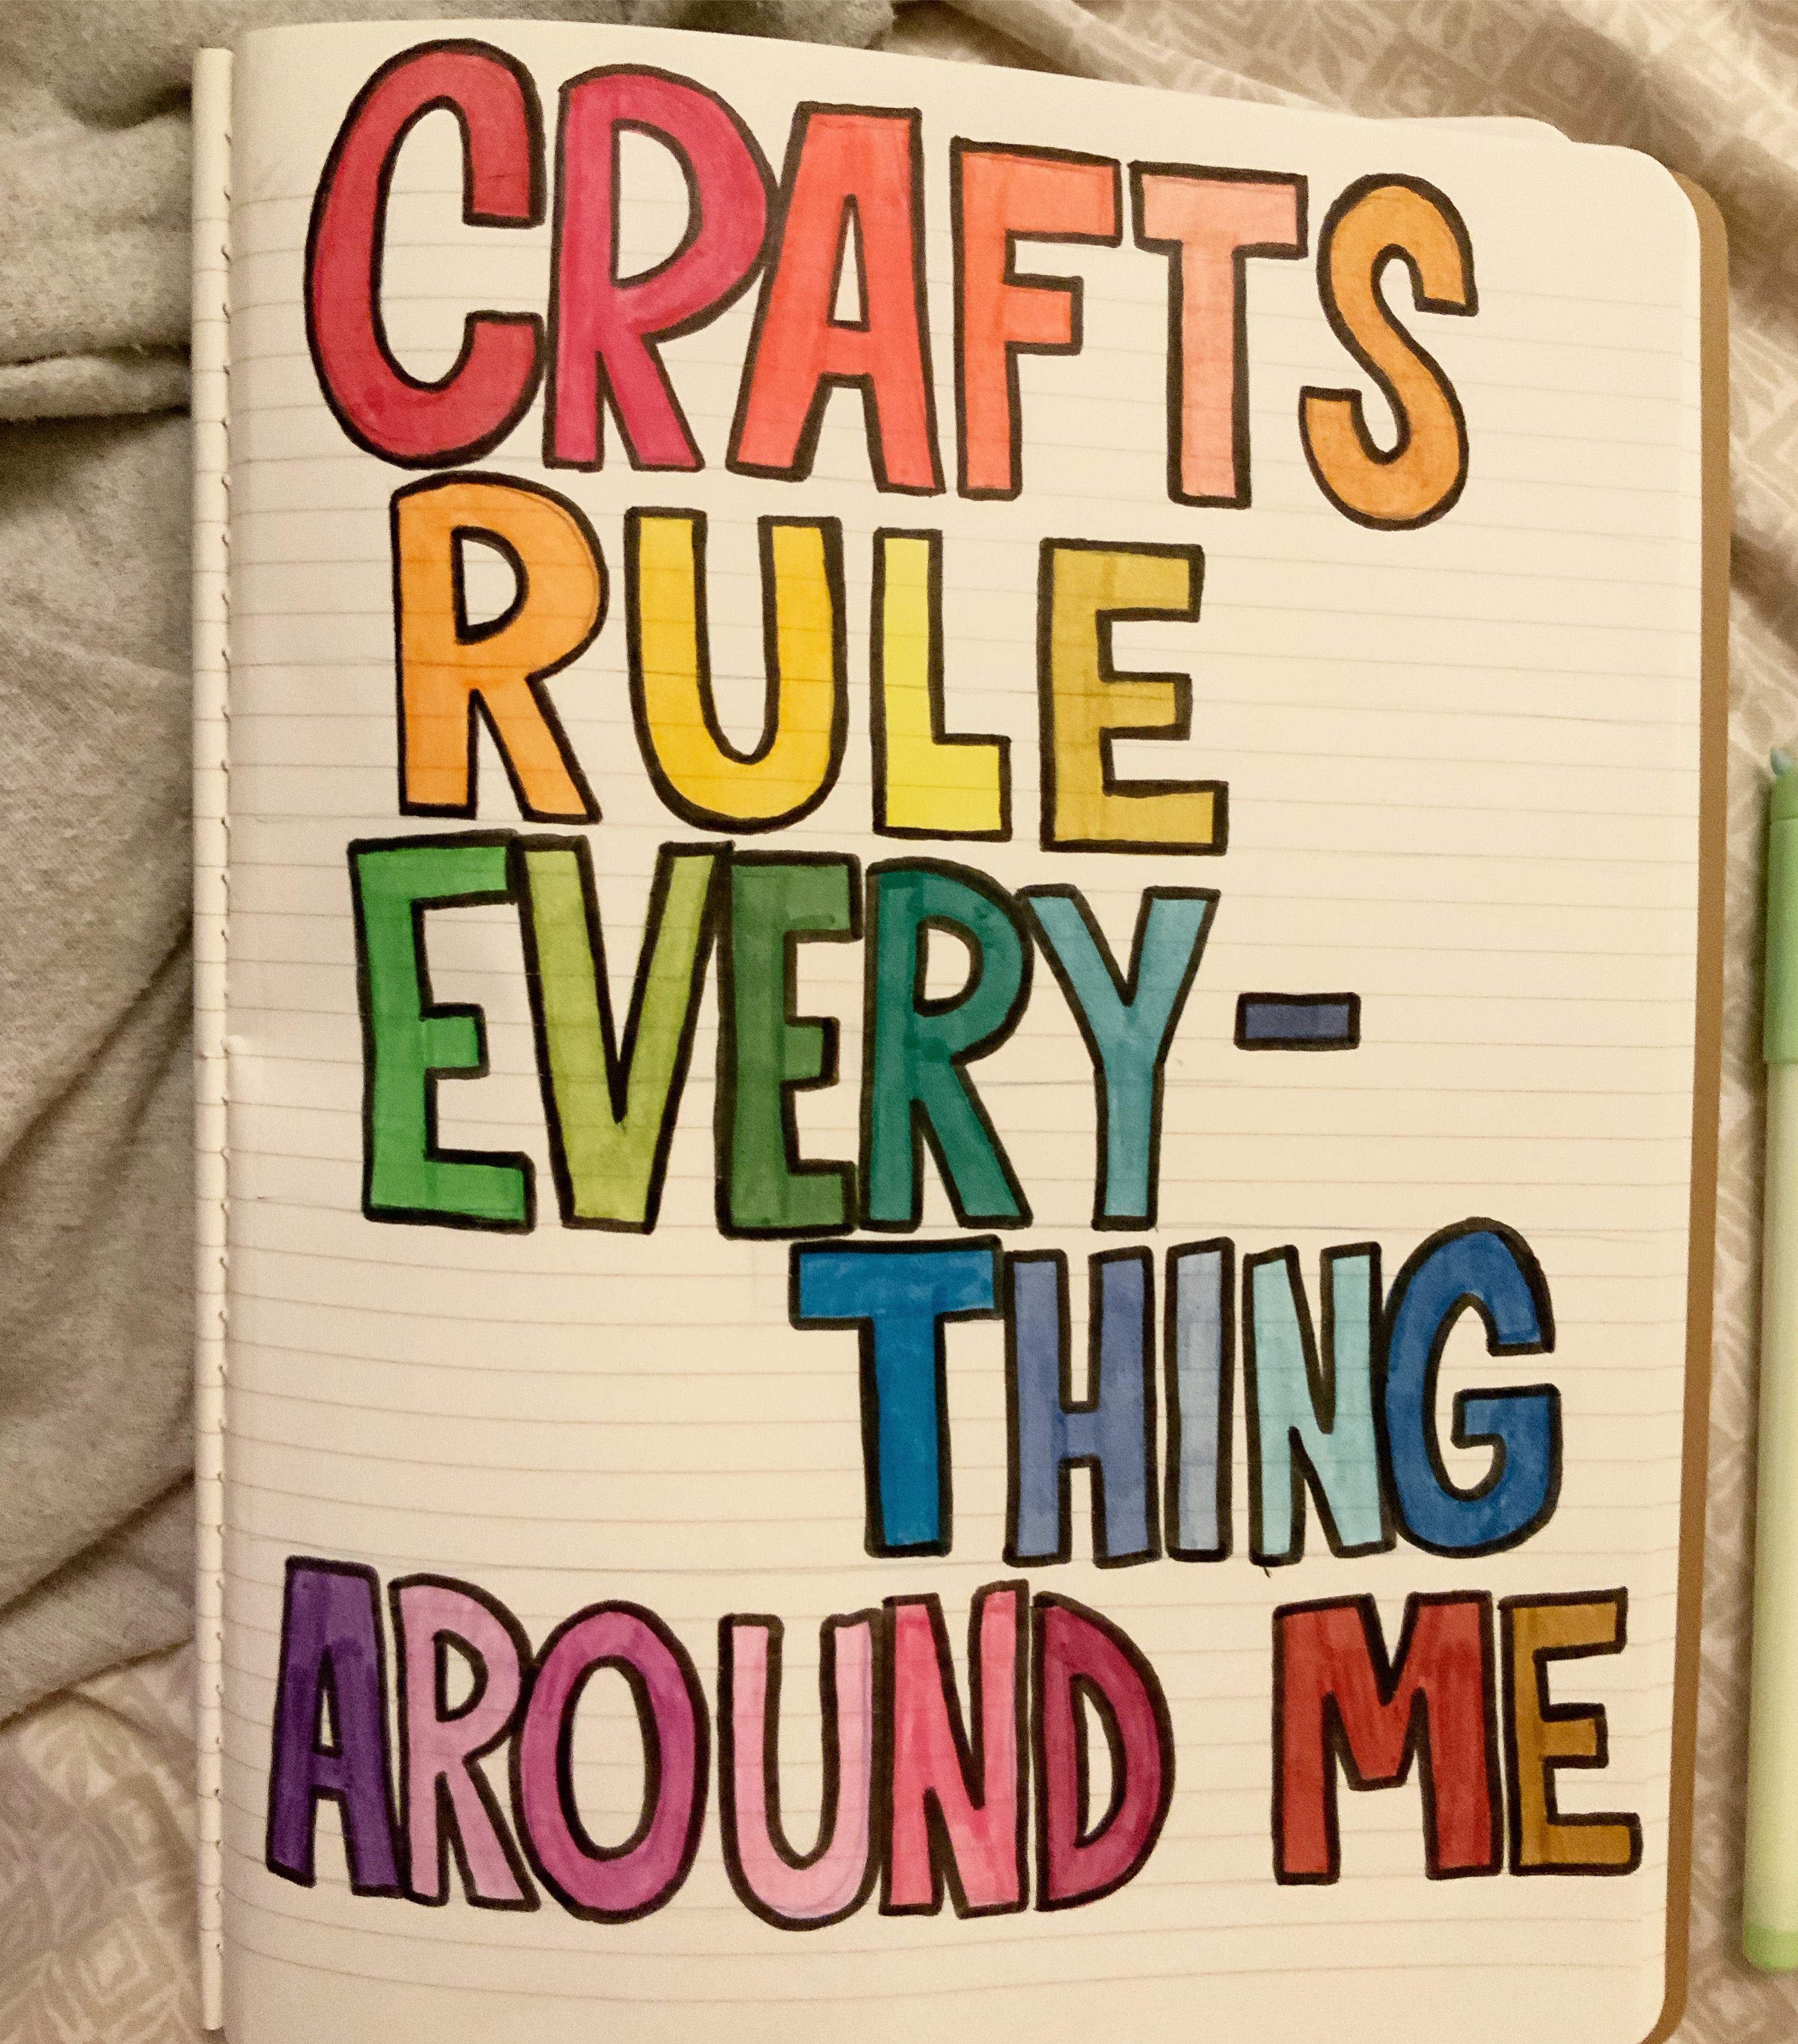 CRAFTS
RULE
EVERY-
THING
AROUND ME